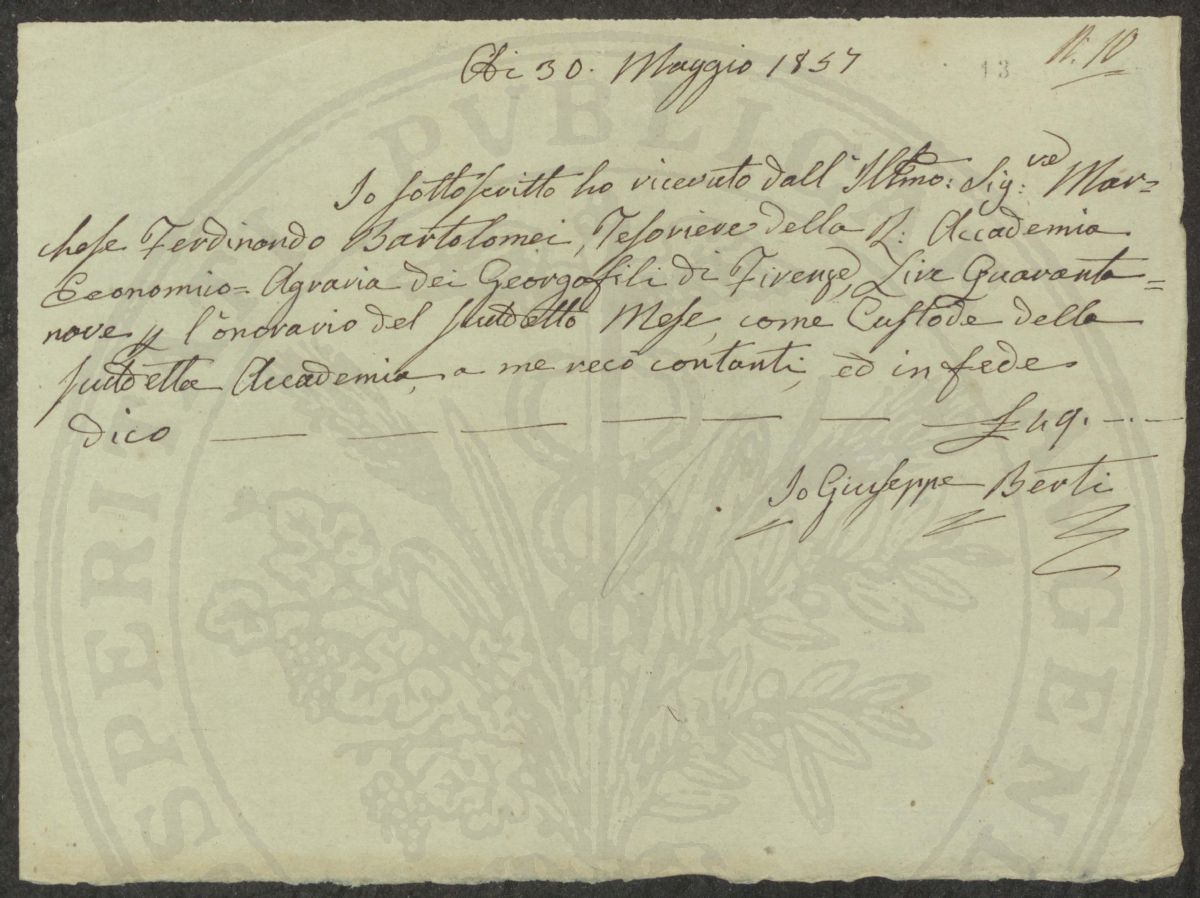 N. 10
13
Adi 30. Maggio 1857
Io sottoscritto ho ricevuto dall' Illmo: Sig:re Mar=
chese Ferdinando Bartolomei, Tesoriere della R: Accademia
Economico=Agraria dei Georgofili di Firenze, Lire Quaranta=
nove p l'onorario del suddetto Mese, come Custode della
suddetta Accademia, a me reco contanti, ed in fede
dico — — — — — — — £ 49. —. —
Io Giuseppe Berti
PVBLICA
SPERITATI